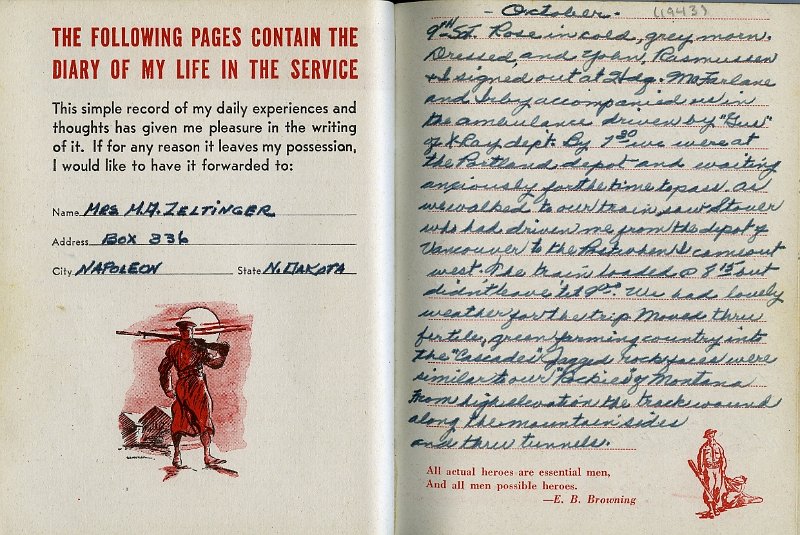 THE FOLLOWING PAGES CONTAIN THE
DIARY OF MY LIFE IN THE SERVICE
This simple record of my daily experiences and
thoughts has given me pleasure in the writing
of it. If for any reason it leaves my possession,
I would like to have it forwarded to:
Name MRS M.A. ZELTINGER
Address BOX 336
City NAPOLEON State N. DAKOTA
- October - (1943)
9TH St. Rose in cold, grey morn.
Dressed, and Rasmussen
& I signed out at Hdq. McFarlane
and Irby accompanied us in
the ambulance driven by "Gus"
of X-Ray dept. By 7 30 we were at
the Portland depot and waiting
anxiously for the time to pass. As
we walked to our train, saw Stover
who had driven me from the depot of
Vancouver to the when I came out
west. The train loaded @ 8 15 but
didn't leave 'til We had lovely
weather for the trip. Moved thru
fertile, green farming country into
the "Cascades" Jagged rock faces were
similar to our "Rockies" of Montana
From high elevation the track wound
along the mountain sides
and thru tunnels.
All actual heroes are essential men,
And all men possible heroes.
—E. B. Browning